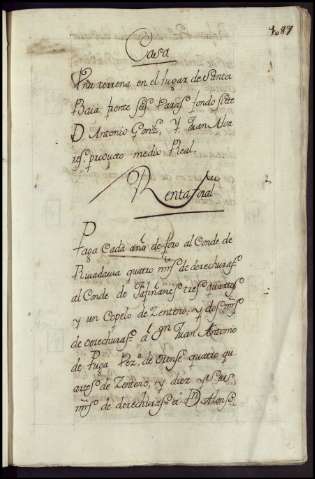 1087
Casa
Una terrena en el lugar de Santa
Baia frente seis Varas fondo siete
D Antonio Gonz.z Y Juan Alva
res: produto medio Real.
Renta foral
Paga cada año de foro al Conde de
Rivadavia quatro mrs de derechuras
al Conde de tres quartos
y un Copelo de Zenteno, y dos mrs
de derechuras á Dn Juan Antonio
de Puga Vez.o de Orense quatro qu
artos de Zenteno, y diez y seis
mrs de derechuras á D Alonso